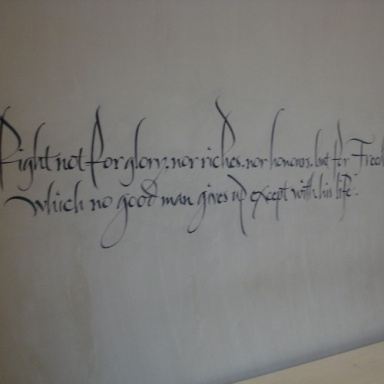 Fight not for glory, nor riches, nor honours, but for Freed
which no good man gives up except with his life.